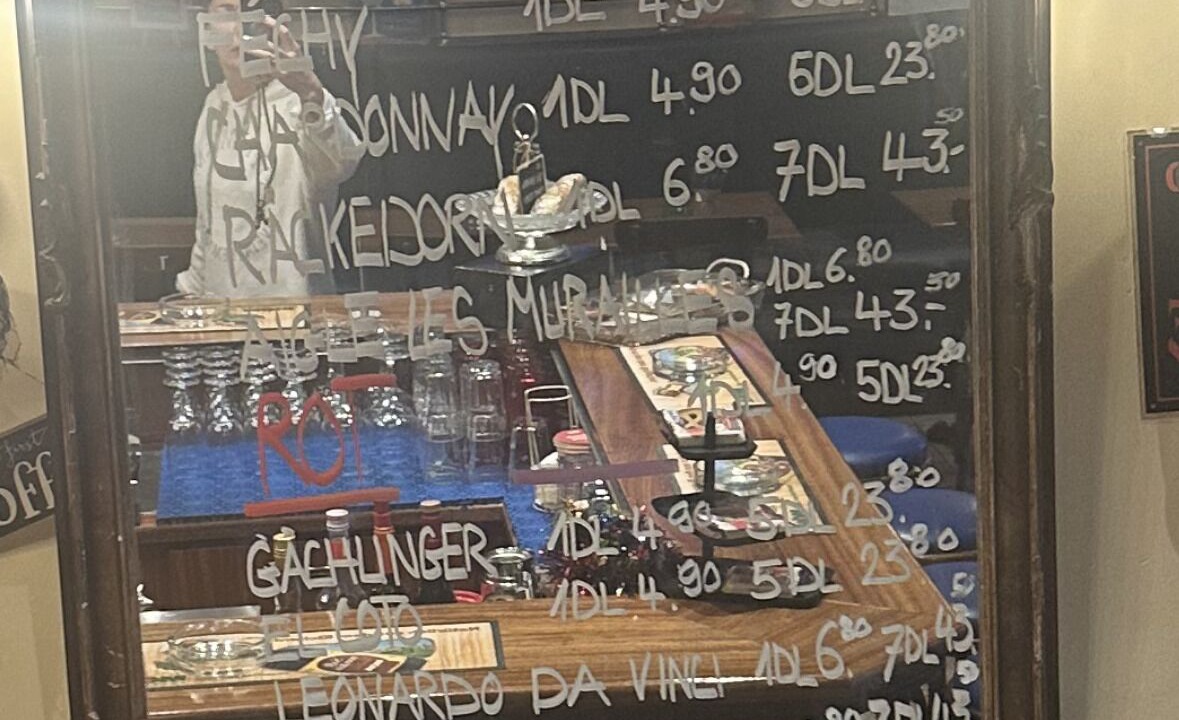 FÉCHY 1DL 4.90
CHARDONNAY 1DL 4.90 5DL 23.80
RÄCKEDORN 1DL 6.80 7DL 43.50
AIGLE LES MURAILLES 1DL 6.80
7DL 43.50
1DL 4.90 5DL 23.80
ROT
GÄCHLINGER 1DL 4.90 5DL 23.80
EL COTO 1DL 4.90 5DL 23.80
LEONARDO DA VINCI 1DL 6.80 7DL 43.50
off